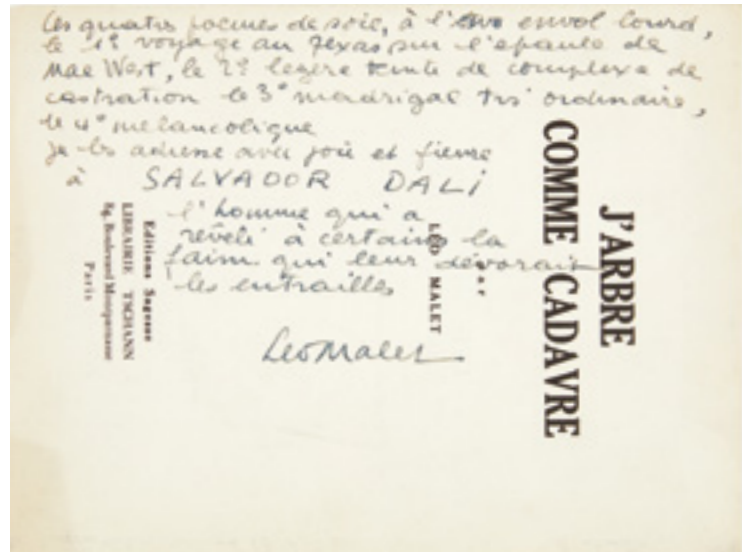 Ces quatre poèmes de soie, à l'envol lourd,
le 1º voyage au Texas sur l'épaule de
Mae West, le 2º légère teinte de complexe de
castration le 3º madrigal très ordinaire,
le 4º mélancolique
je les adresse avec joie et fièvre
à SALVADOR DALI
l'homme qui a
révélé à certains la
faim qui leur dévorait
les entrailles
Léo Malet
J'ARBRE
COMME CADAVRE
par
LÉO MALET
Editions Sagesse
LIBRAIRIE TSCHANN
84, Boulevard Montparnasse
Paris